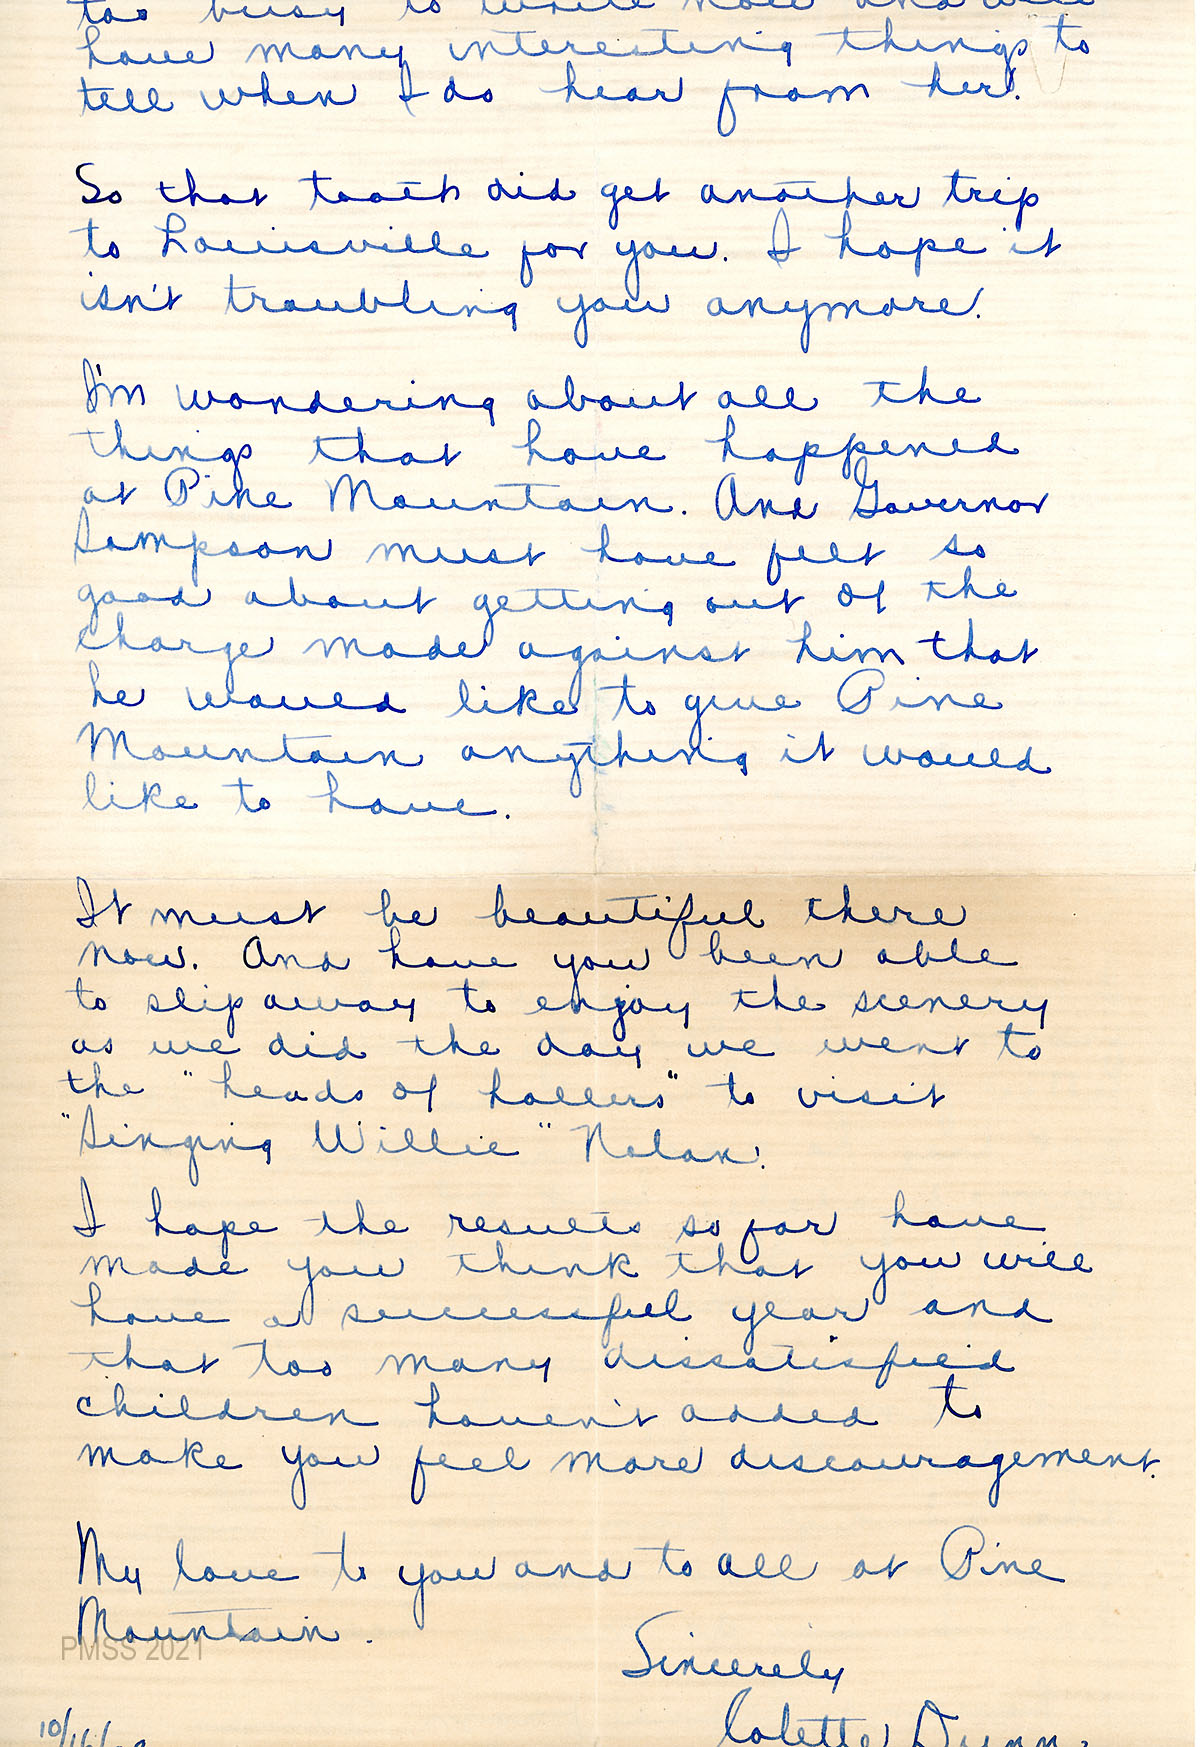 too busy to write now and will
have many interesting things to
tell when I do hear from her!
So that tooth did get another trip
to Louisville for you. I hope it
isn't troubling you anymore!
I'm wondering about all the
things that have happened
at Pine Mountain. And Governor
Sampson must have felt so
good about getting out of the
charge made against him that
he would like to give Pine
Mountain anything it would
like to have.
It must be beautiful there
now. And have you been able
to slip away to enjoy the scenery
as we did the day we went to
the "heads of hollers" to visit
"Singing Willie" Nolan!
I hope the results so far have
made you think that you will
have a successful year and
that too many dissatisfied
children haven't added to
make you feel more discouragement.
My love to you and to all at Pine
Mountain.
PMSS 2021
Sincerely
Colette Dunn.